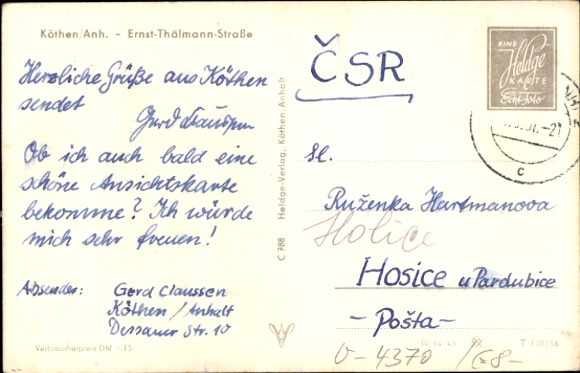 Köthen/Anh. – Ernst-Thälmann-Straße
Herzliche Grüße aus Köthen
sendet
Gerd Claussen
Ob ich auch bald eine
schöne Ansichtskarte
bekomme? Ich würde
mich sehr freuen!
Absender: Gerd Claussen
Köthen / Anhalt
Dessauer Str. 10
Verbraucherpreis DM -.15
C 788 Heldge-Verlag, Köthen/Anhalt
EINE
Heldge
KARTE
Echt-Foto
ČSR
Sl.
Ruženka Hartmanova
Holice
Hosice u Pardubice
- Pošta -
IV-14-45
T 120/56
V-4370